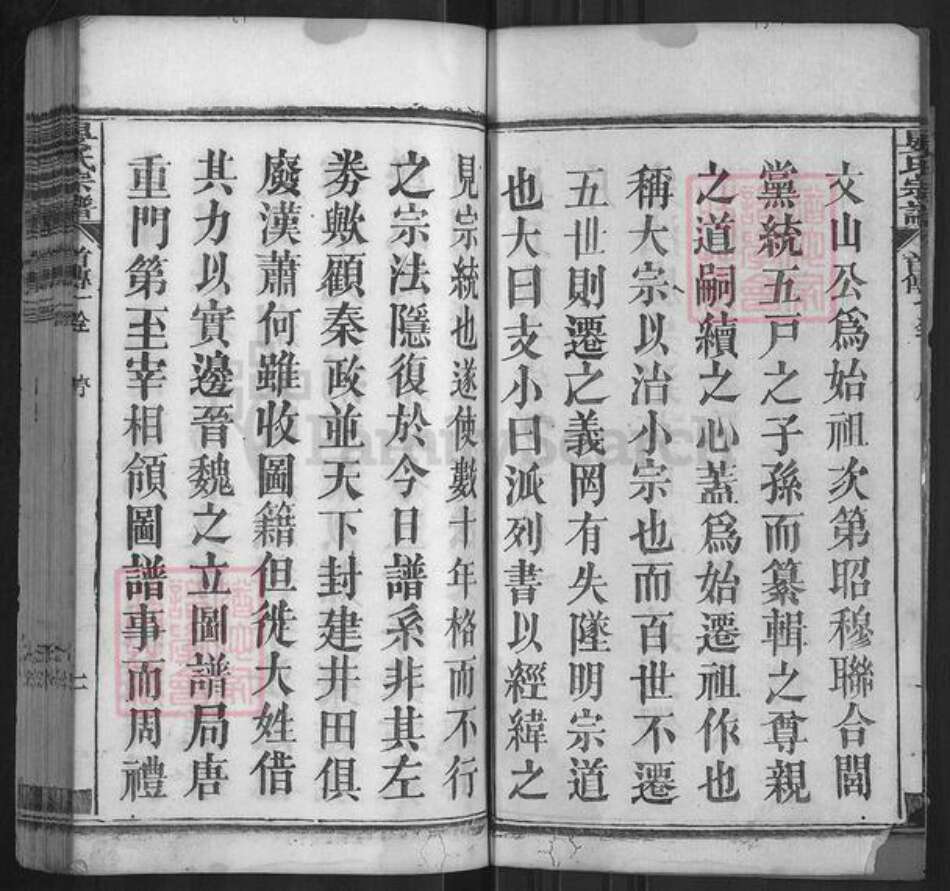 文山公爲始祖次第昭穆聯合闔
黨統五戸之子孫而纂輯之尊親
之道嗣續之心蓋爲始遷祖作也
稱大宗以治小宗也而百世不遷
五世則遷之義罔有失墜明宗道
也大曰支小曰派列書以經緯之
見宗統也遂使數十年格而不行
之宗法隱復於今日譜系非其左
劵歟顧秦政並天下封建井田俱
廢漢蕭何雖收圖籍但徙大姓借
其力以實邊晉魏之立圖譜局唐
重門第至宰相領圖譜事而周禮
氏宗譜
首傳一
序
FamilySearch